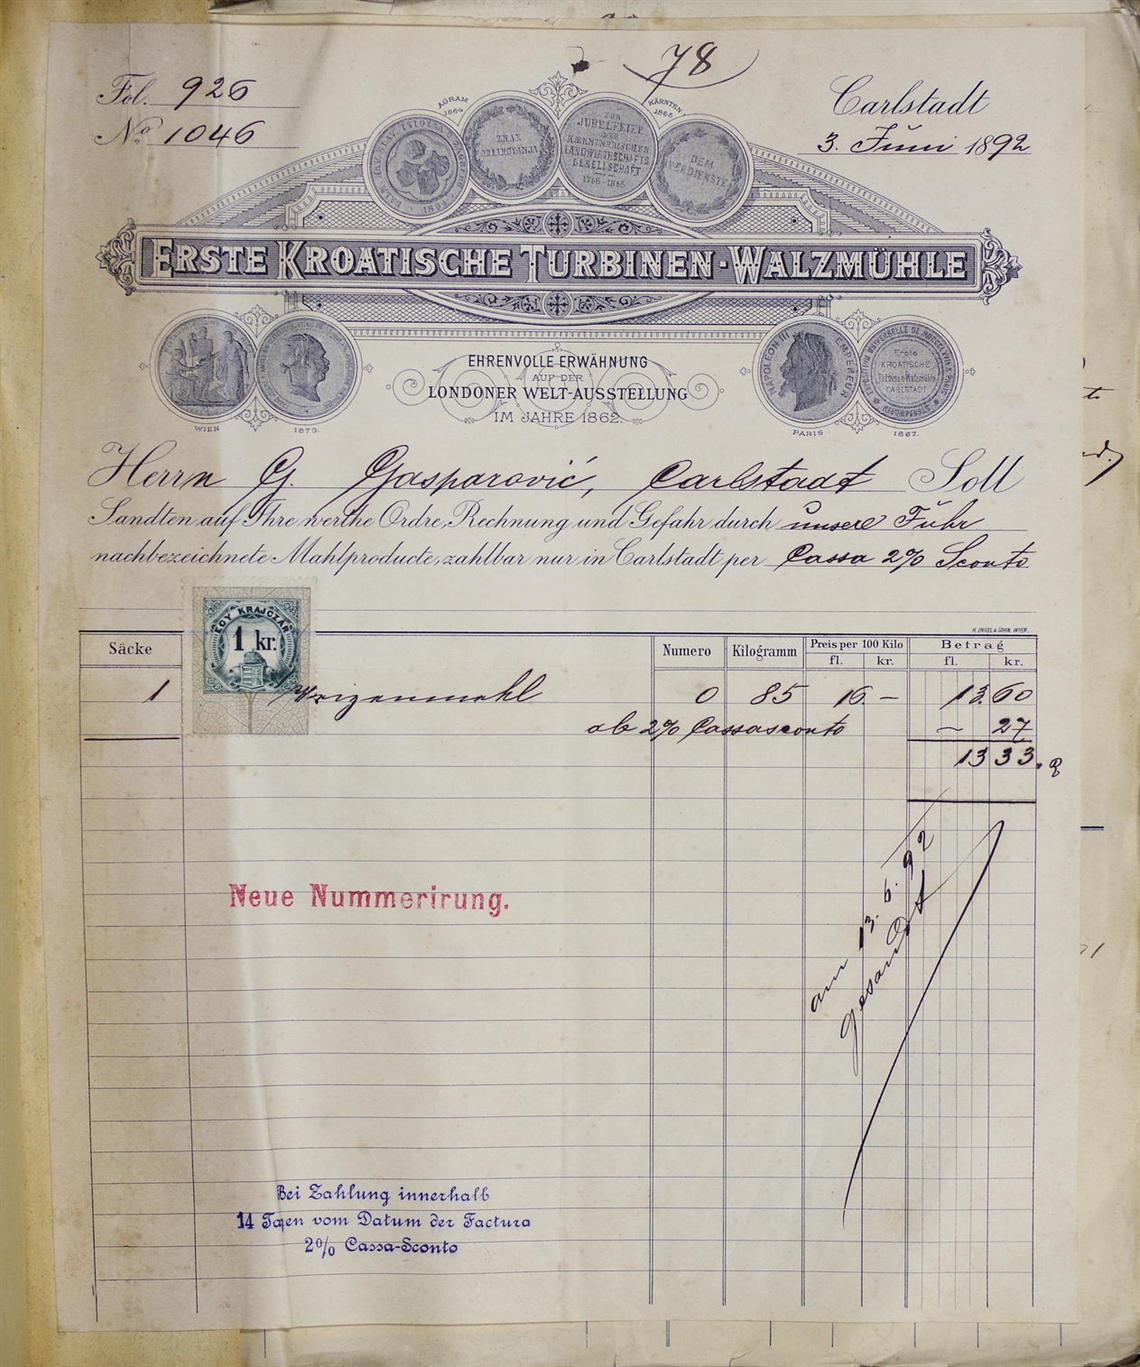 78
Fol. 926
No 1046
Carlstadt
3. Juni 1892
AGRAM 1864
KÄRNTEN 1865
ZNAK
ZUR
JUBELFEIER
DER
KÄRNTNERISCHEN
LANDWIRTHSCHAFTS
GESELLSCHAFT
1765-1865
DEM
VERDIENSTE
ERSTE KROATISCHE TURBINEN-WALZMÜHLE
EHRENVOLLE ERWÄHNUNG
AUF DER
LONDONER WELT-AUSSTELLUNG
IM JAHRE 1862.
NAPOLEON III EMPEREUR
Erste
KROATISCHE
Turbinen-Walzmühle
CARLSTADT
RECOMPENSES
WIEN 1873.
PARIS 1867.
Herrn G. Gasparović, Carlstadt Soll
Sandten auf Ihre werthe Ordre, Rechnung und Gefahr durch unsere Fuhr
nachbezeichnete Mahlproducte, zahlbar nur in Carlstadt per Cassa 2% Sconto
EGY KRAJCZÁR
1 kr.
H. ENGEL & SOHN, WIEN.
Säcke Numero Kilogramm Preis per 100 Kilo Betrag
fl. kr. fl. kr.
1 Weizenmehl 0 85 16 – 13.60
ab 2% Cassasconto – 27
13 33.
am 13.6.92
gesandt
Neue Nummerirung.
Bei Zahlung innerhalb
14 Tagen vom Datum der Factura
2% Cassa-Sconto